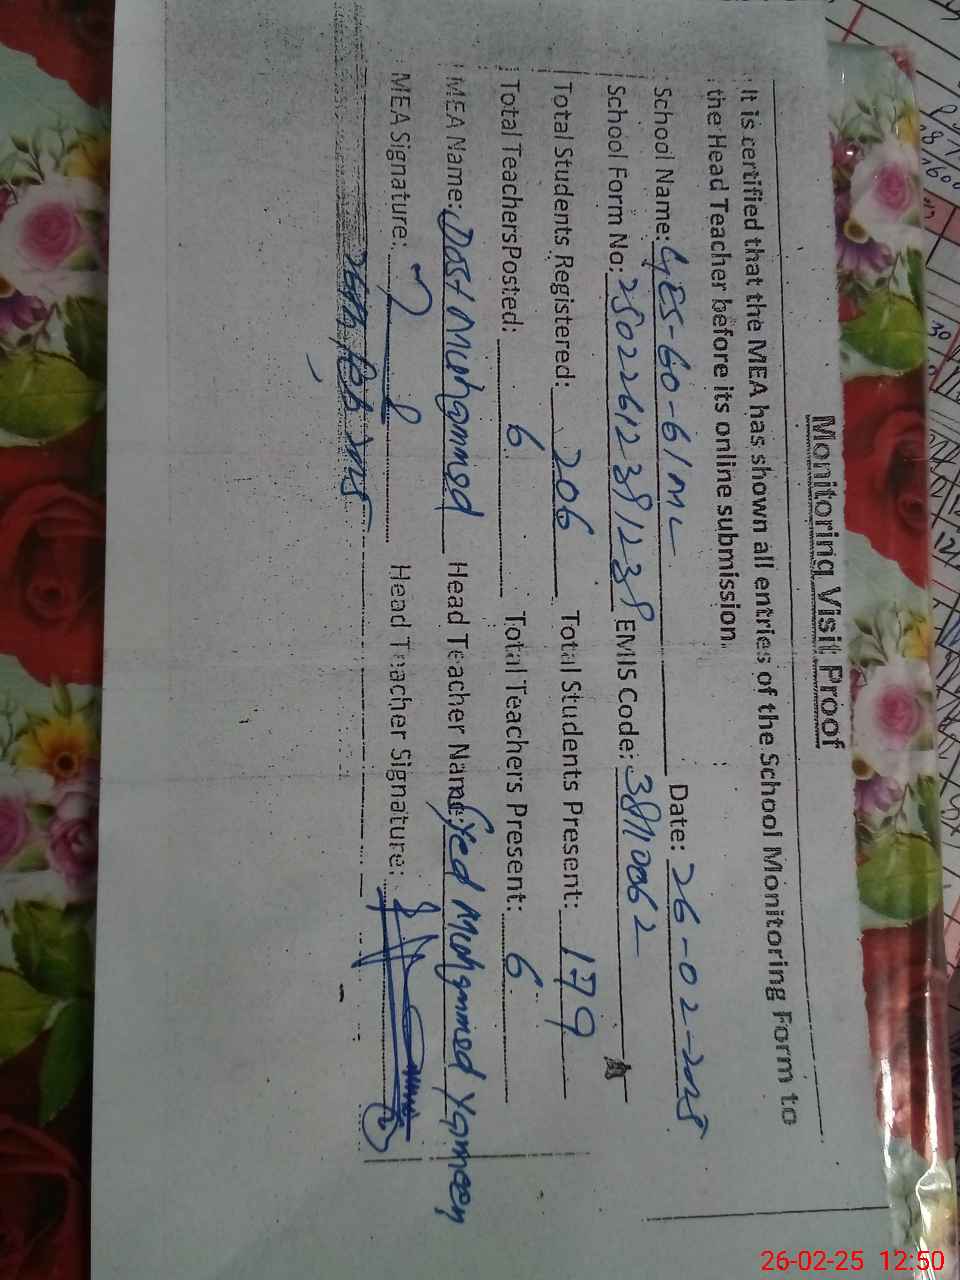 Monitoring Visit Proof
It is certified that the MEA has shown all entries of the School Monitoring Form to
the Head Teacher before its online submission.
School Name: GES-60-61ML Date: 26-02-2025
School Form No: 25022612381238 EMIS Code: 38110062
Total Students Registered: 206 Total Students Present: 179
Total TeachersPosted: 6 Total Teachers Present: 6
MEA Name: Dost Muhammad Head Teacher Name: Syed Muhammad Yameen
MEA Signature: Head Teacher Signature:
26th, Feb 2025
26-02-25 12:50